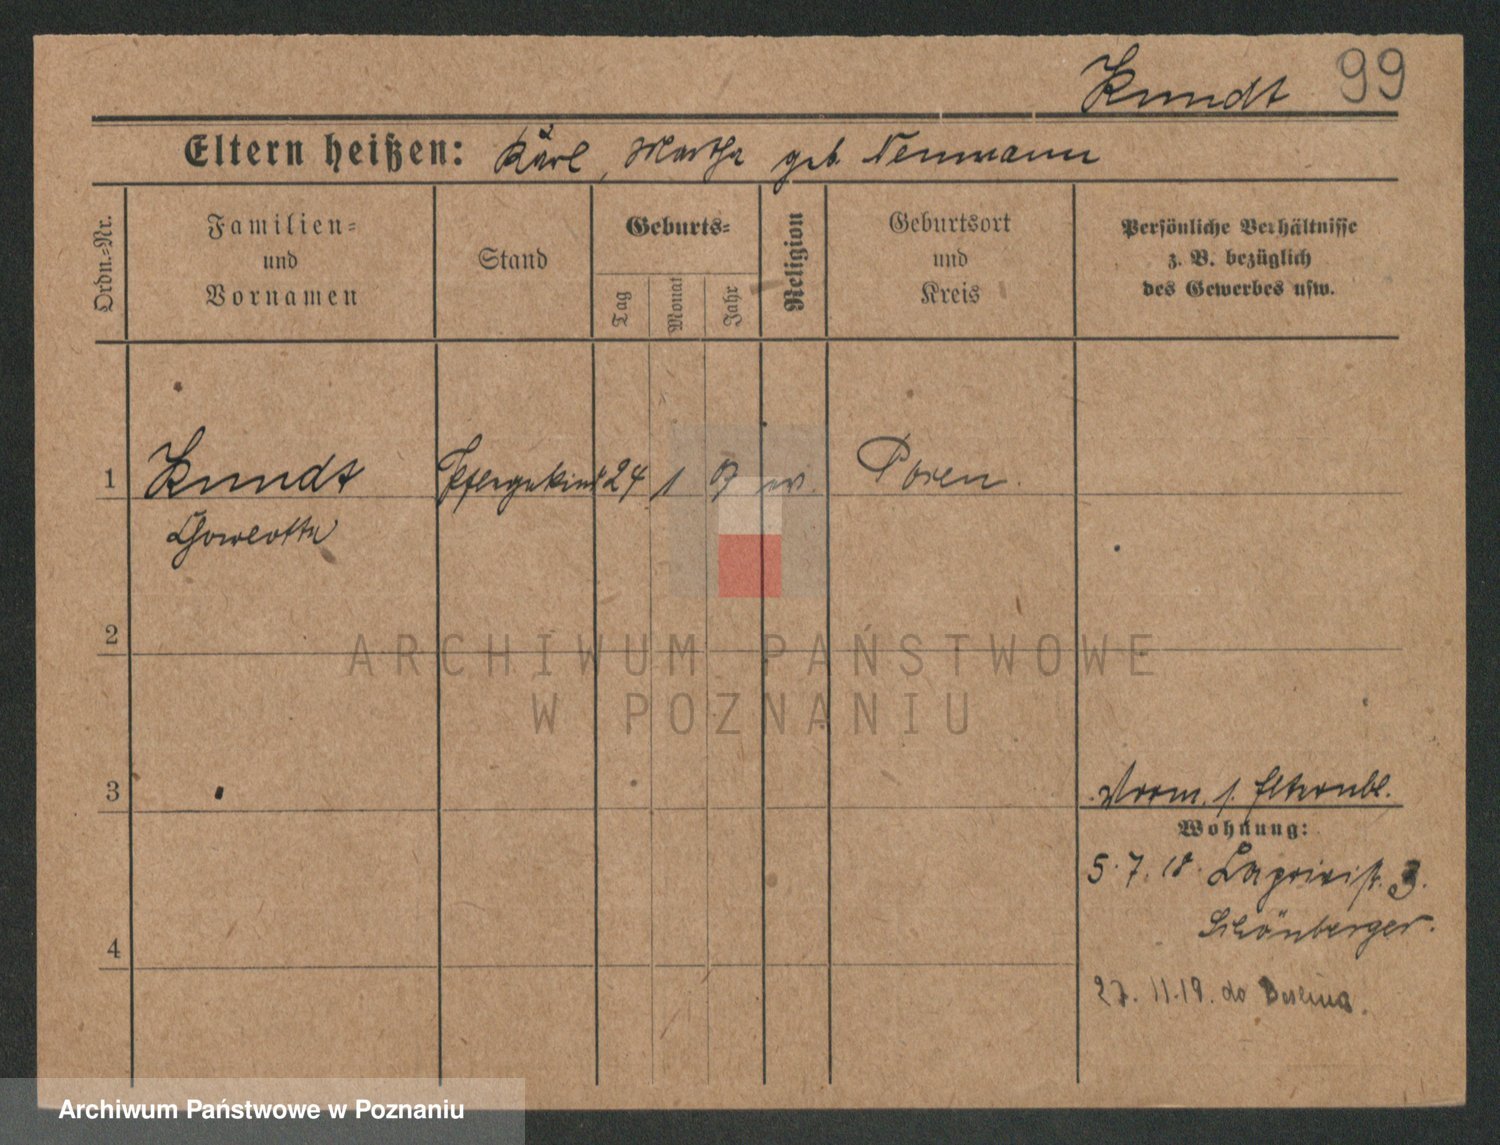 Kundt 99
Eltern heißen: Karl, Martha geb. Neumann
Ordn.=Nr.
Familien=
und
Vornamen
Stand
Geburts=
Tag
Monat
Jahr
Religion
Geburtsort
und
Kreis
Persönliche Verhältnisse
z. B. bezüglich
des Gewerbes usw.
1 Kundt Pflegekind 24 1 ev. Posen.
2
3
4
Vorm. s. Elternbl.
Wohnung:
5.7.18. 3.
Schönberger.
27. 11.19. do Berlina.
ARCHIWUM PAŃSTWOWE
W POZNANIU
Archiwum Państwowe w Poznaniu